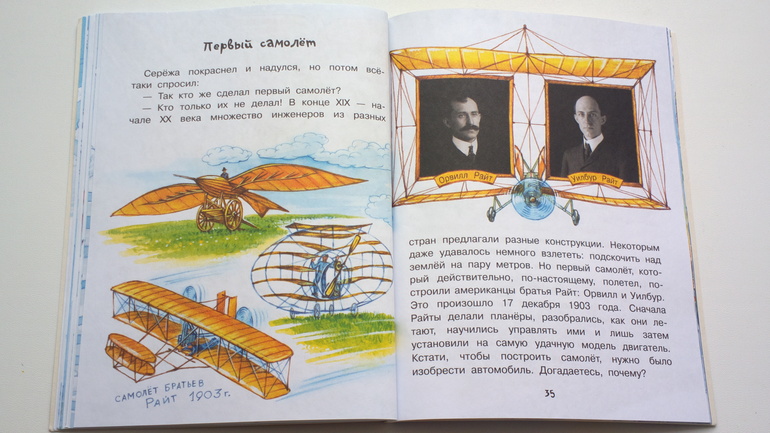 Первый самолёт
Серёжа покраснел и надулся, но потом всё-
таки спросил:
— Так кто же сделал первый самолёт?
— Кто только их не делал! В конце XIX — на-
чале XX века множество инженеров из разных
САМОЛЁТ БРАТЬЕВ
РАЙТ 1903 г.
Орвилл Райт
Уилбур Райт
стран предлагали разные конструкции. Некоторым
даже удавалось немного взлететь: подскочить над
землёй на пару метров. Но первый самолёт, кото-
рый действительно, по-настоящему, полетел, по-
строили американцы братья Райт: Орвилл и Уилбур.
Это произошло 17 декабря 1903 года. Сначала
Райты делали планёры, разобрались, как они ле-
тают, научились управлять ими и лишь затем
установили на самую удачную модель двигатель.
Кстати, чтобы построить самолёт, нужно было
изобрести автомобиль. Догадаетесь, почему?
35